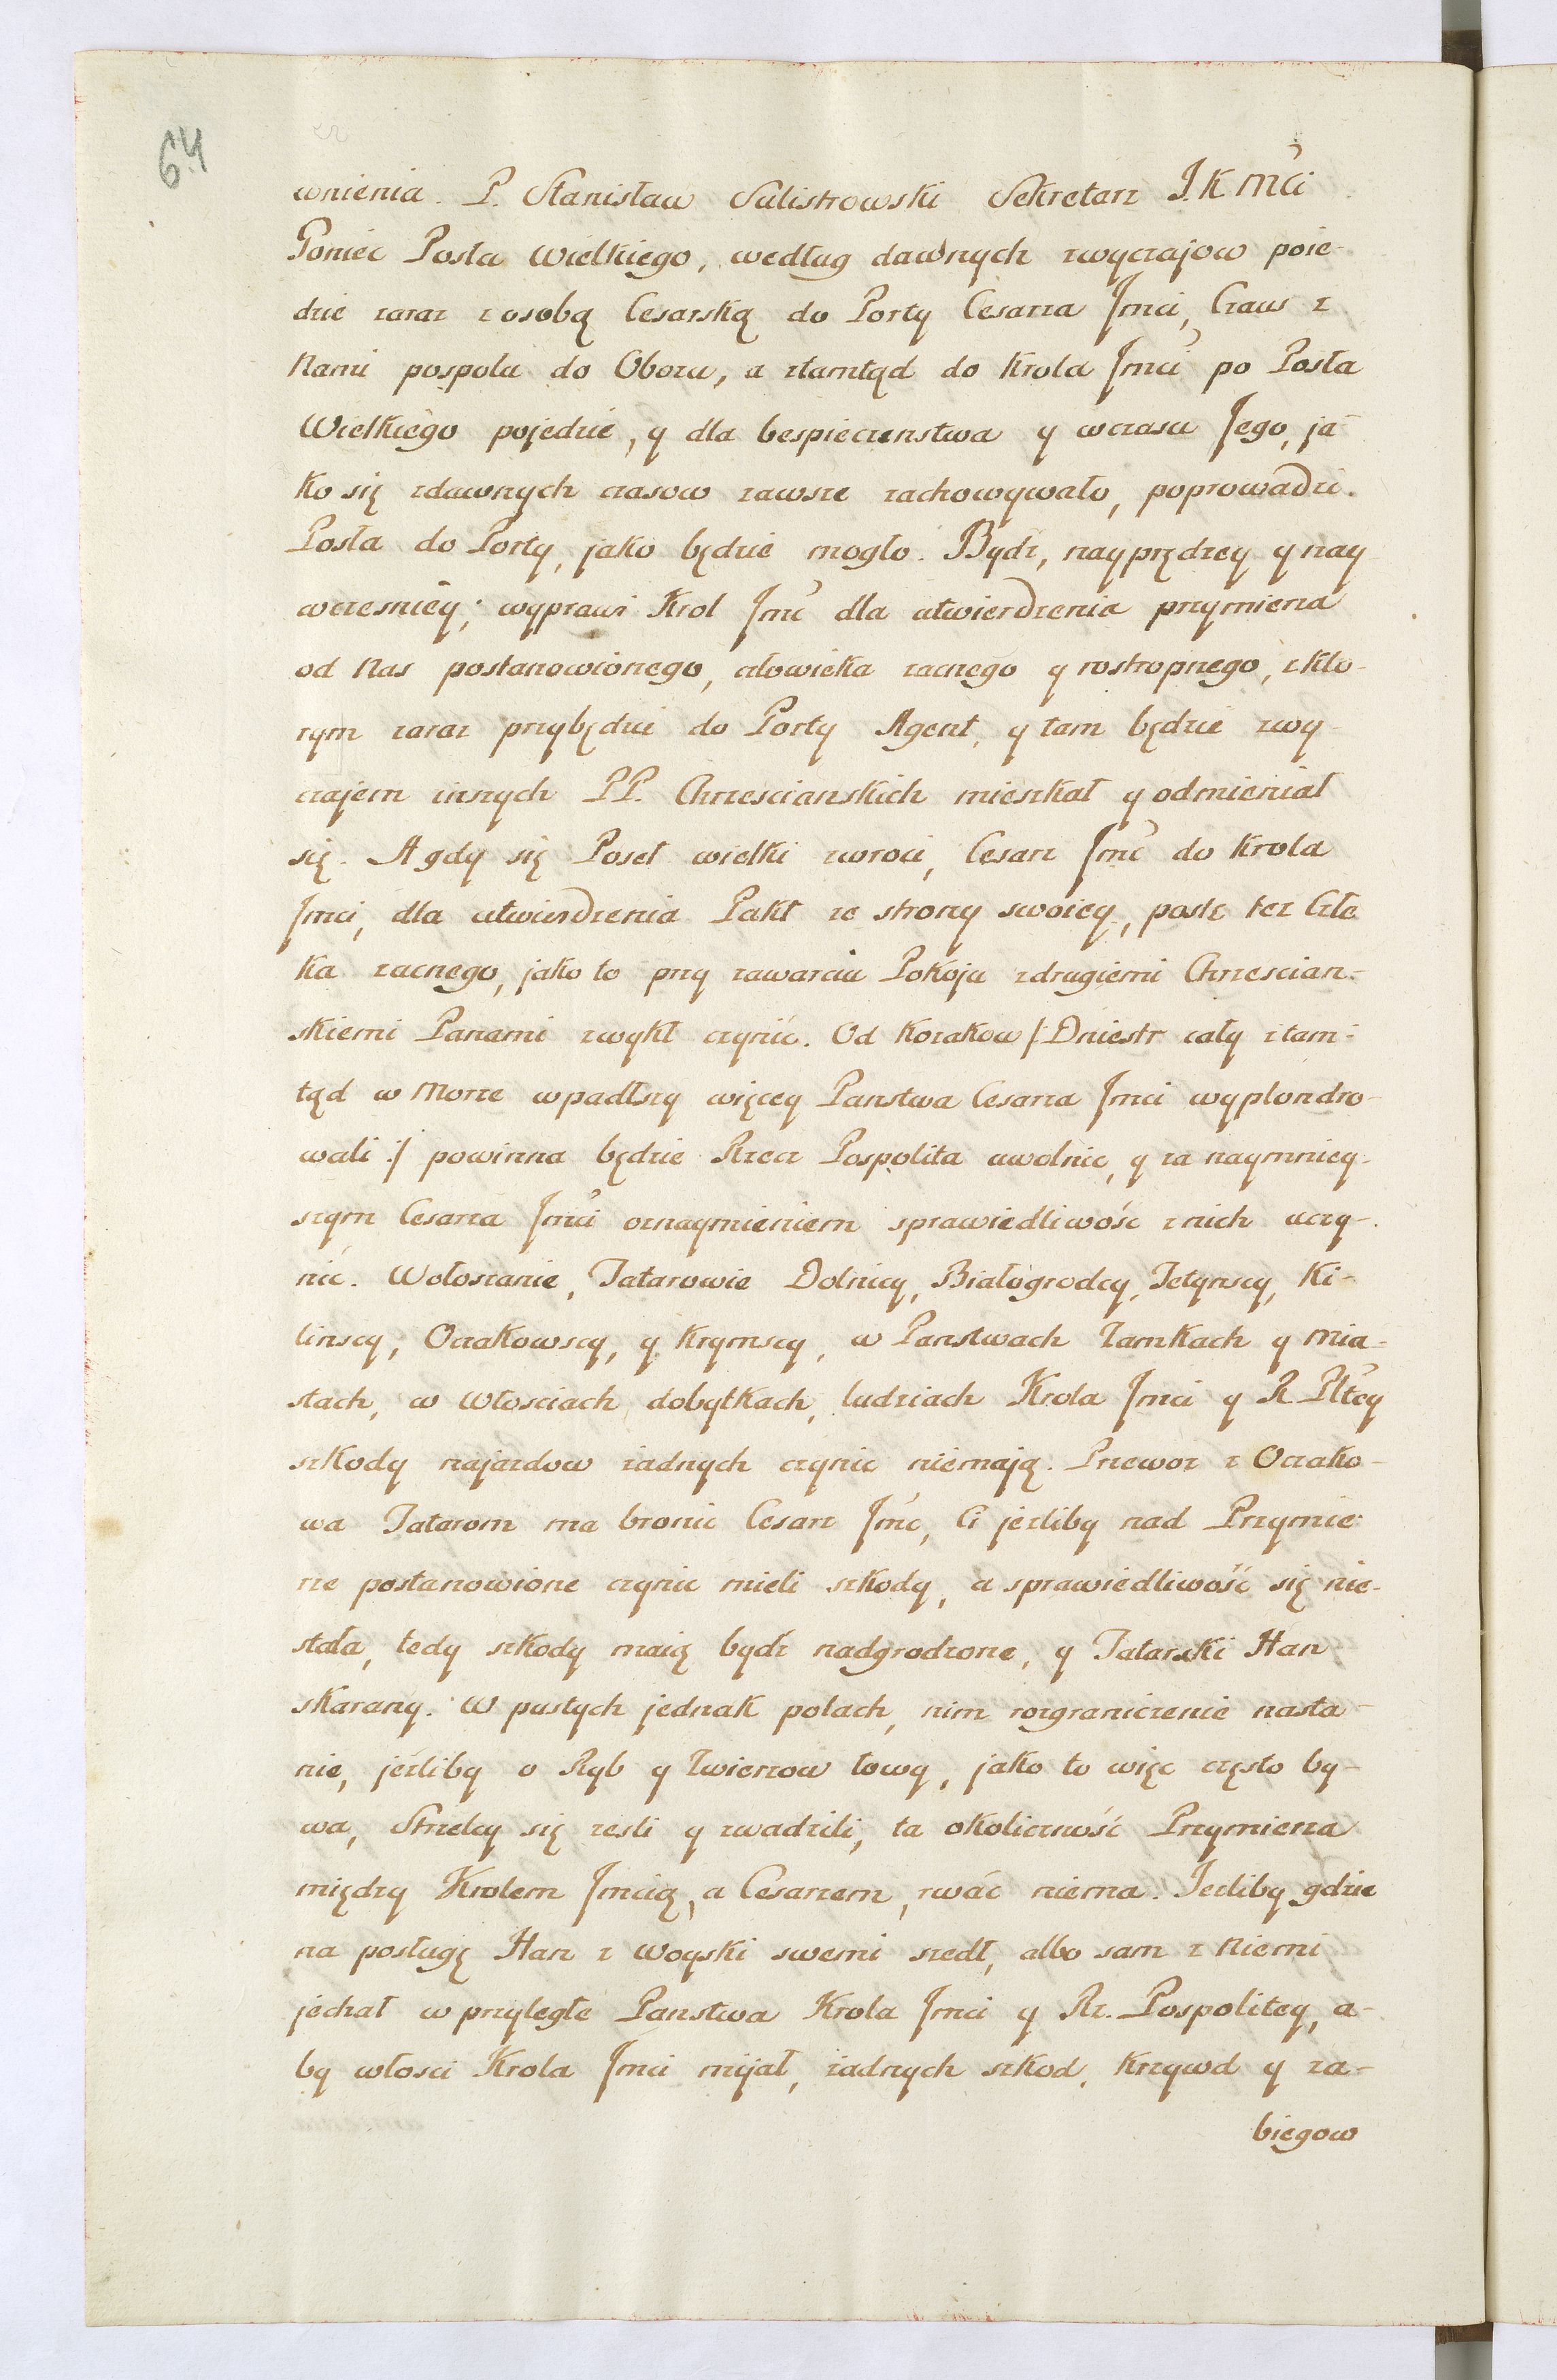 64
wnienia. P. Stanisław Sulistrowski Sekretarz J.K Mći
Goniec Posła Wielkiego, według dawnych zwyczajow poie-
dzie zaraz z osobą Cesarską do Porty Cesarza Jmci, Czaus z
Nami pospolu do Obozu, a ztamtąd do Krola Jmći po Posła
Wielkiego pojedzie, y dla bespieczenstwa y wczasu Jego, ja-
ko się zdawnych czasow zawsze zachowywało, poprowadzi.
Posła do Porty, jako będzie mogło. Bydz, nayprędzey y nay
wczesniey; wyprawi Krol Jmć dla utwierdzenia przymierza
od Nas postanowionego, człowieka zacnego y rostropnego, z kto-
rym zaraz przybędzie do Porty Agent, y tam będzie zwy-
czajem innych PP. Chrzescianskich mieszkał y odmieniał
się. A gdy się Poseł wielki zwroci, Cesarz Jmć do Krola
Jmci, dla utwierdzenia Pakt ze strony swoiey, posle tez Człe
ka zacnego, jako to przy zawarciu Pokoju zdrugiemi Chrzescian-
skiemi Panami zwykł czynić. Od Kozakow /: Dniestr cały ztam-
tąd w Morze wpadłszy więcey Panstwa Cesarza Jmci wyplondro-
wali :/ powinna będzie Rzecz Pospolita uwolnic, y za naymniey-
szym Cesarza Jmći oznaymieniem sprawiedliwośc z nich uczy-
nić. Wołoszanie, Tatarowie Dolnicy, Białogrodcy, Tetynscy, Ki-
linscy, Oczakowscy, y Krymscy, w Panstwach Zamkach y Mia-
stach, w Włosciach dobytkach, ludziach Krola Jmci y R. Pltey
szkody najazdow żadnych czynic niemają. Przewoz z Oczako-
wa Tatarom ma bronic Cesarz Jmć, Ci jezliby nad Przymie-
rze postanowione czynic mieli szkody, a sprawiedliwość się nie-
stała, tedy szkody maią bydz nadgrodzone, y Tatarski Han
skarany. W pustych jednak polach, nim rozgraniczenie nasta-
nie, jeźliby o Ryb y Zwierzow łowy, jako to więc często by-
wa, Strzelcy się zesli y zwadzili, ta okoliczność Przymierza
między Krolem Jmcią, a Cesarzem, rwać niema. Jezliby gdzie
na posługę Han z Woyski swemi szedł, albo sam z Niemi
jechał w przyległe Panstwa Krola Jmci y Rz. Pospolitey, a-
by włosci Krola Jmci mijał, żadnych szkod, Krzywd y za-
biegow